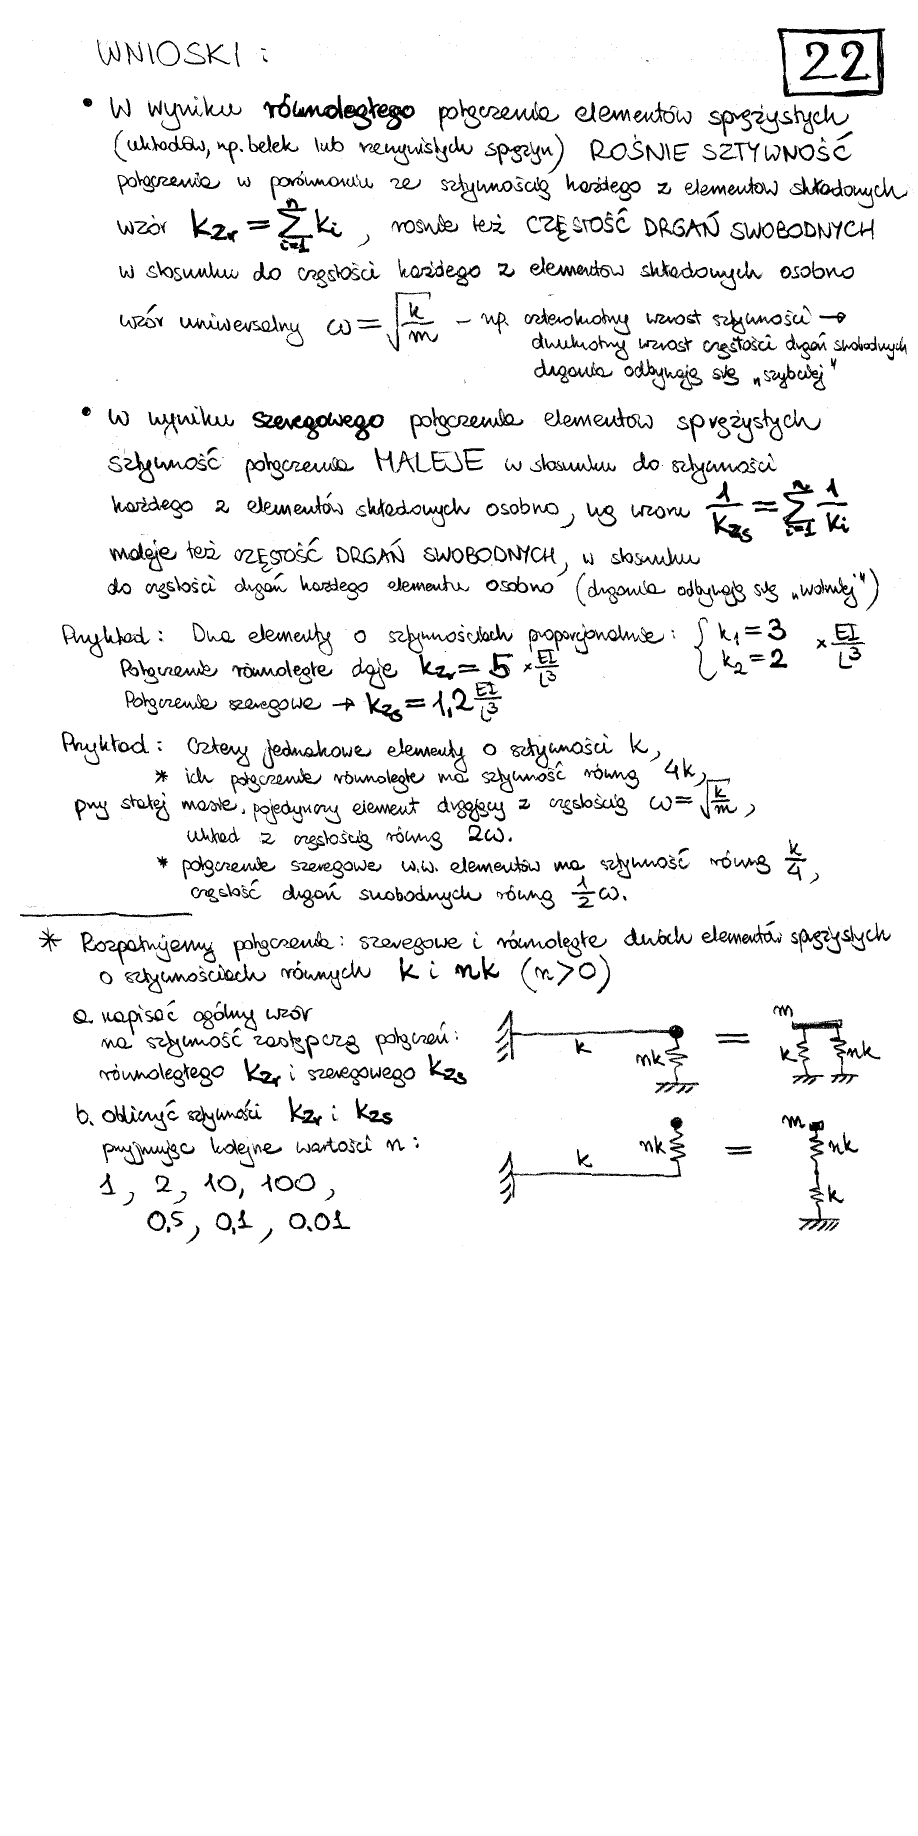 WNIOSKI :
22
• W wyniku równoległego połączenia elementów sprężystych
(układów, np. belek lub rzeczywistych sprężyn) ROŚNIE SZTYWNOŚĆ
połączenia w porównaniu ze sztywnością każdego z elementów składowych
wzór kzr = ∑_{i=1}^{n} ki , rośnie też CZĘSTOŚĆ DRGAŃ SWOBODNYCH
w stosunku do częstości każdego z elementów składowych osobno
wzór uniwersalny ω = √(k/m) – np. czterokrotny wzrost sztywności →
dwukrotny wzrost częstości drgań swobodnych
drgania odbywają się „szybciej"
• W wyniku szeregowego połączenia elementów sprężystych
sztywność połączenia MALEJE w stosunku do sztywności
każdego z elementów składowych osobno, wg wzoru 1/kzs = ∑_{i=1}^{n} 1/ki
maleje też CZĘSTOŚĆ DRGAŃ SWOBODNYCH, w stosunku
do częstości drgań każdego elementu osobno (drgania odbywają się „wolniej")
Przykład : Dwa elementy o sztywnościach proporcjonalnie : { k1 = 3 k2 = 2 × EI/L³
Połączenie równoległe daje kzr = 5 × EI/L³
Połączenie szeregowe → kzs = 1,2 EI/L³
Przykład : Cztery jednakowe elementy o sztywności k,
* ich połączenie równoległe ma sztywność równą 4k,
przy stałej masie, pojedynczy element drgający z częstością ω = √(k/m) ,
układ z częstością równą 2ω.
* połączenie szeregowe w.w. elementów ma sztywność równą k/4 ,
częstość drgań swobodnych równą 1/2 ω.
* Rozpatrujemy połączenia : szeregowe i równoległe dwóch elementów sprężystych
o sztywnościach równych k i nk (n>0)
a. napisać ogólny wzór
na sztywność zastępczą połączeń :
równoległego kzr i szeregowego kzs
k nk = m k nk
b. obliczyć sztywności kzr i kzs
przyjmując kolejne wartości n :
1 , 2 , 10, 100 ,
0,5 , 0,1 , 0.01
k nk = m nk k